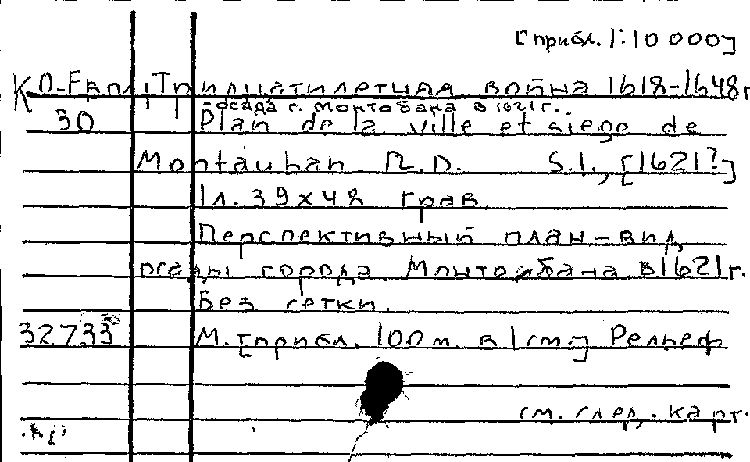 [прибл. 1:10 000]
К О-Евр., Тридцатилетная война 1618-1648г
осада г. Монтобана в 1621г.
30 Plan de la ville et siege de
Montauban N.D. S.l., [1621?]
1 л. 39 x 48 грав.
Перспективный план-вид
осады города Монтобана в 1621 г.
Без сетки.
32733 М. [прибл. 100 м. в 1 см.] Рельеф
см. след. карт.